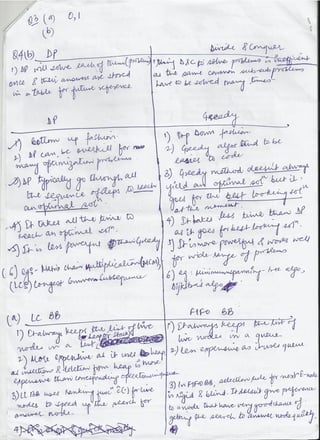 Q3 (a) 0,1
(b)
Q4(b) DP
Divide & Conquer
1) DP will solve each of them (problems)
once & their answers are stored
in a table for future reference
1) Using D&C to solve problems is inefficient
as the same common sub-sub problems
have to be solved many times
DP
1) bottom up fashion
2) DP can be overkill for
many optimization problems
3) DP typically go through all
the sequence of steps to reach
an optimal solⁿ
4) It takes all the time to
reach an optimal solⁿ.
5) It is less powerful than Greedy
(6) Egs - Matrix chain Multiplication (MCM),
(LCS) longest common subsequence
Greedy
1) Top Down fashion
2) Greedy algos tend to be
easier to code
3) Greedy method doesn't always
yield an optimal solⁿ but it
goes for the best looking solⁿ
at the moment
4) It takes less time than DP
as it goes for best looking solⁿ.
5) It is more powerful & works well
for wide range of problems
6) eg: minimum spanning tree algo,
Dijkstra's algo
(a) LC BB
1) It always keeps the list of live
nodes in a heap
2) More expensive as it uses heap
as insertion & deletion from heap is more
expensive than corresponding operation on queue
3) LC BB uses ranking funⁿ ĉ(·) for live
nodes to speed up the search for
answer node.
FIFO BB
1) It always keeps the list of
live nodes in a queue.
2) Less expensive as it uses queue
3) In FIFO BB, selection rule for next E-node
is rigid & blind. It doesn't give preference
to a node that have very good chance of
getting the search to answer node quickly